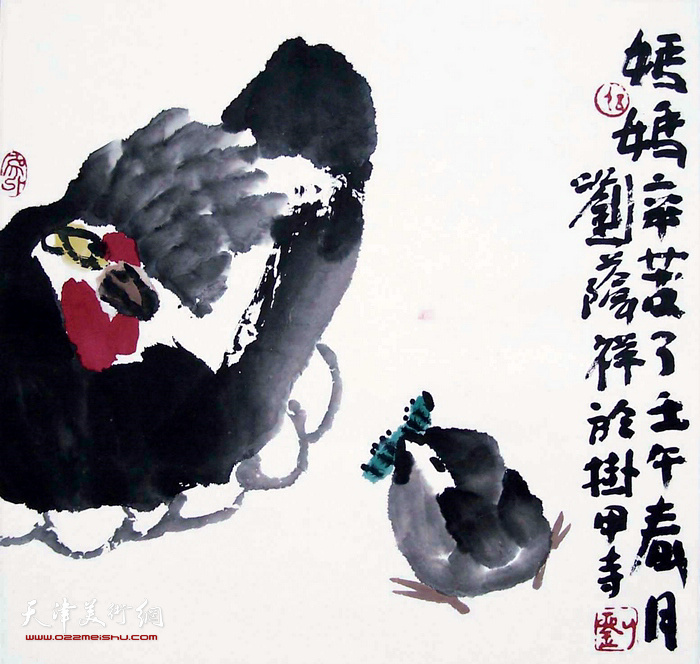 媽媽辛苦了壬午春月
劉蔭祥於掛甲寺
天津美術網
www.022meishu.com